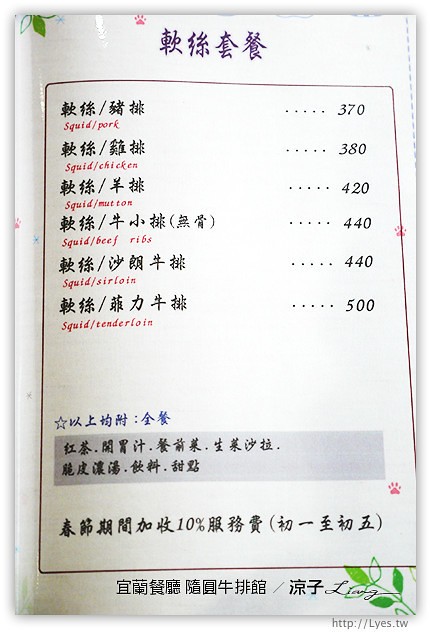 軟絲套餐
軟絲/豬排 ..... 370
Squid/pork
軟絲/雞排 ..... 380
Squid/chicken
軟絲/羊排 ..... 420
Squid/mutton
軟絲/牛小排(無骨) ..... 440
Squid/beef ribs
軟絲/沙朗牛排 ..... 440
Squid/sirloin
軟絲/菲力牛排 ..... 500
Squid/tenderloin
☆以上均附:全餐
紅茶.開胃汁.餐前菜.生菜沙拉.
脆皮濃湯.飲料.甜點
春節期間加收10%服務費(初一至初五)
宜蘭餐廳 隨圓牛排館 / 涼子 Liang
http://Lyes.tw